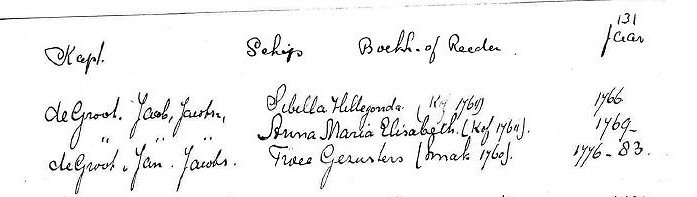 131
Kapt. Schip Boekh. of Reeder. Jaar
de Groot. Jacob, Jacobs, Sibella Hillegonda. (Kof 1764) 1766
" " " Anna Maria Elisabeth. (Kof 1764). 1769-
de Groot, Jan. Jacobs. Twee Gezusters (smak 1760). 1776-83.